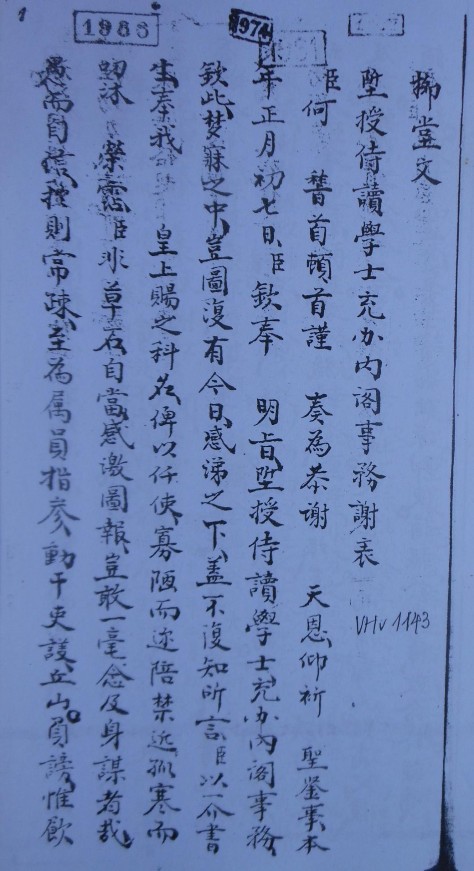 柳堂文
陞授侍讀學士充办内阁事務謝表
臣何 稽首頓首謹 奏為恭謝 天恩仰祈 聖鉴事本
年正月初七日臣欽奉 明旨陞授侍讀學士充办内阁事務
欽此夢寐之中豈圖復有今日感涕之下盖不復知所言臣以一介書
生秦我 皇上賜之科名俾以任使寡陋而迩陪禁近孤寒而
沐 榮寵臣非草石自當感激圖報豈敢一毫念及身謀者哉
愚而自 技則常疎至為属員指參動干吏議丘山負謗惟歐
VHv 1143
1986
1974
1